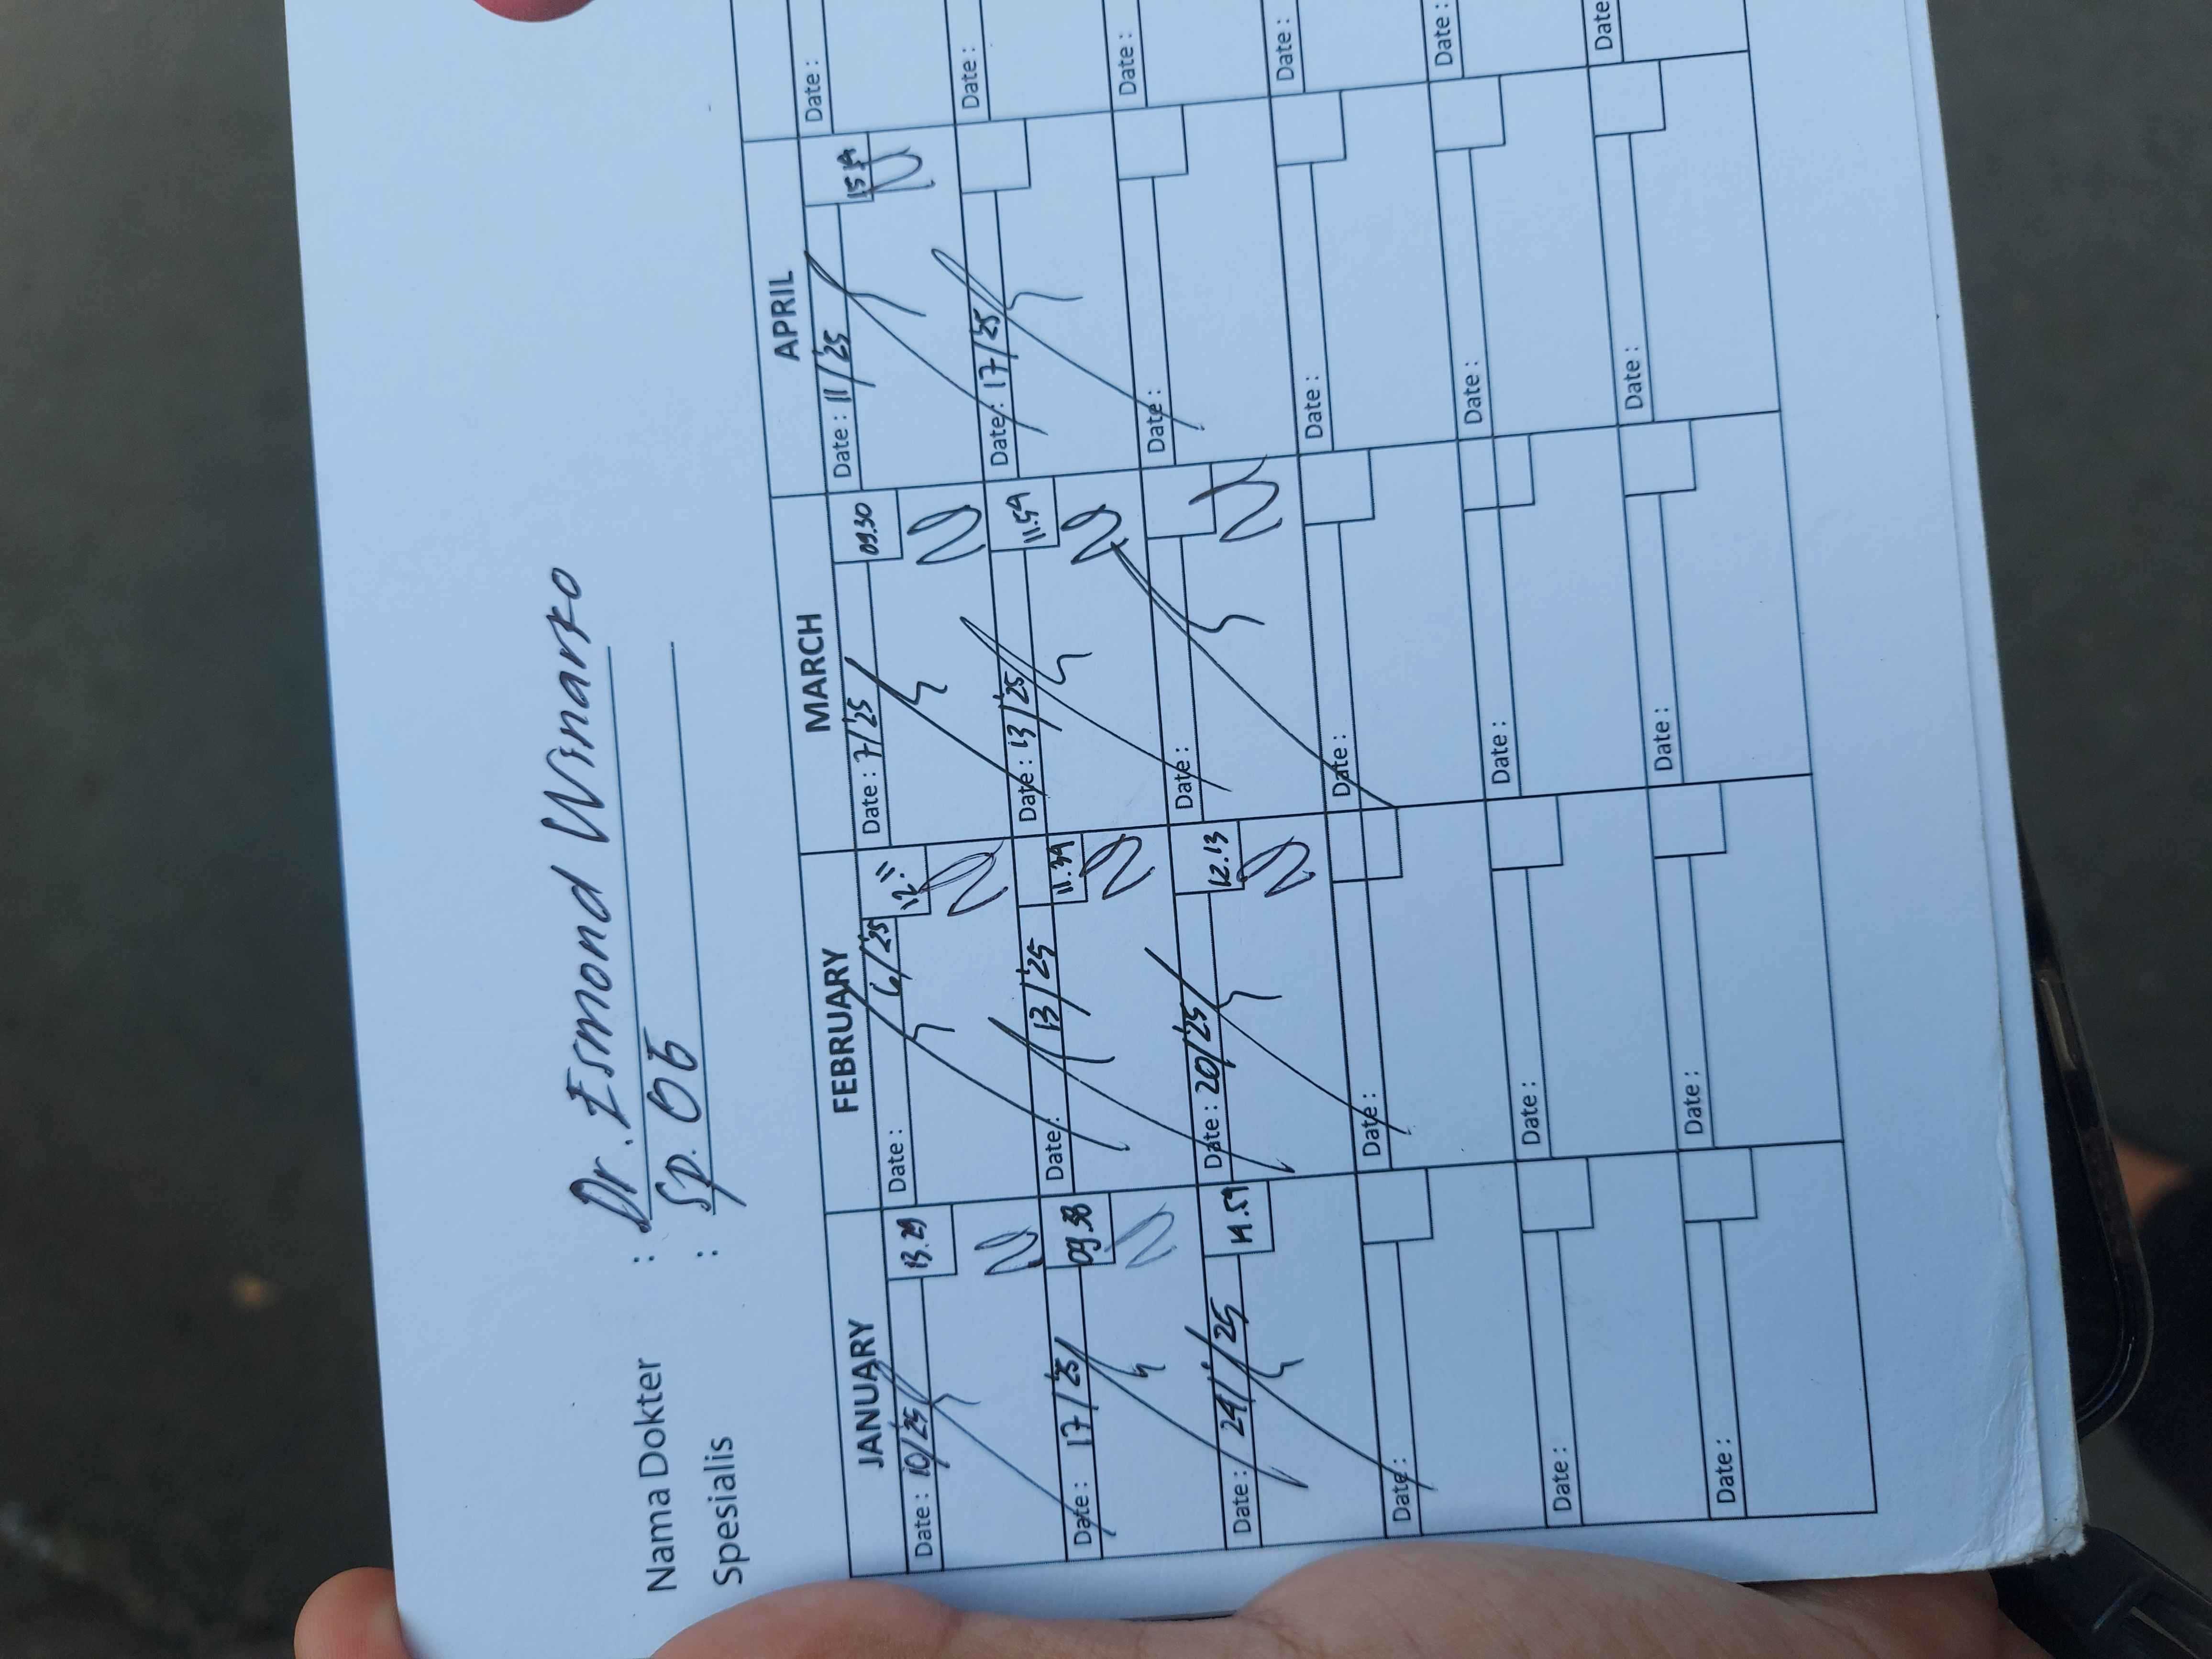 Nama Dokter : Dr. Esmond Winarto
Spesialis : Sp. OT
JANUARY FEBRUARY MARCH APRIL
Date : 10/'25 13.29 Date : 6/'25 12.11 Date : 7/'25 09.30 Date : 11/'25 Date :
Date : 17/'25 09.38 Date : 13/'25 11.39 Date : 13/'25 11.59 Date : 17/'25 Date :
Date : 24/'25 14.59 Date : 20/'25 12.13 Date : Date : Date :
Date : Date : Date : Date : Date :
Date : Date : Date : Date : Date :
Date : Date : Date : Date : Date